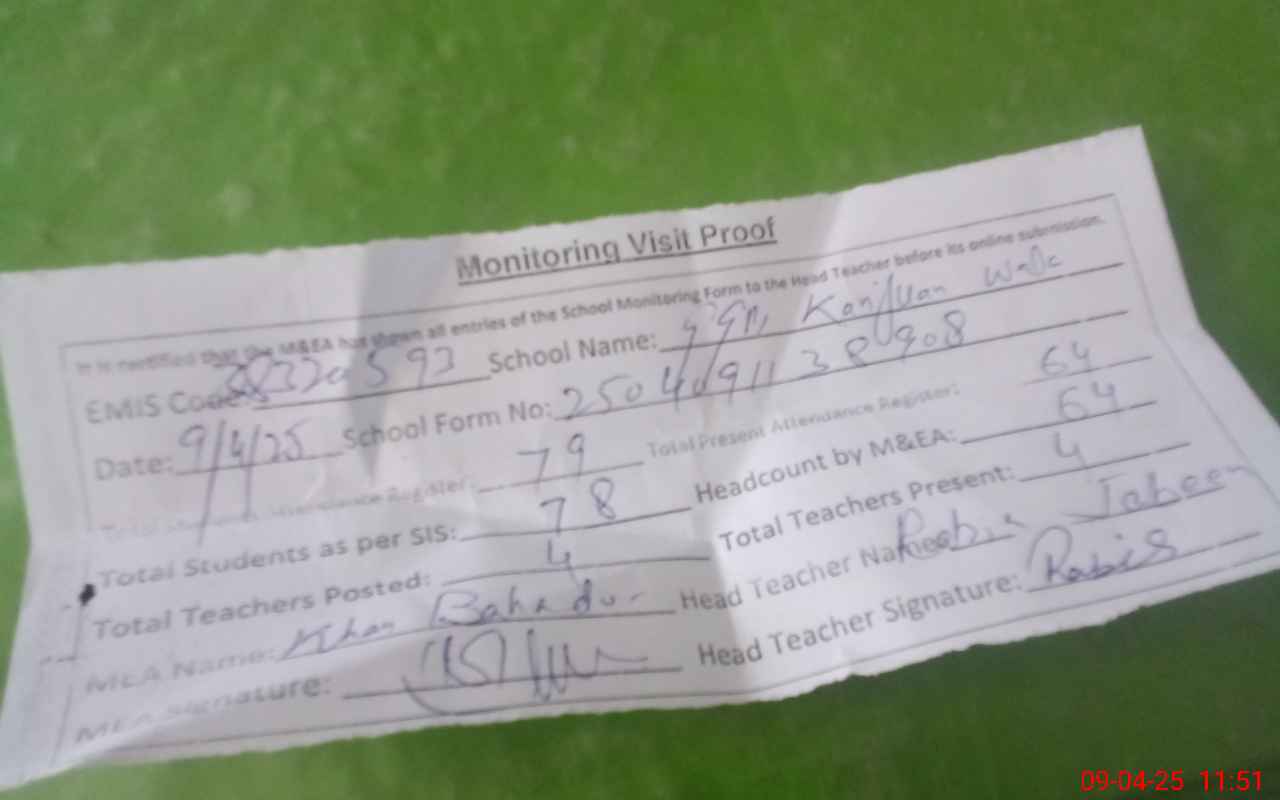 Monitoring Visit Proof
It is certified that the M&EA has shown all entries of the School Monitoring Form to the Head Teacher before its online submission.
EMIS Code: 593 School Name: Wala
Date: 9/4/25 School Form No: 38908
Attendance Register: 79 Total Present Attendance Register: 64
Total Students as per SIS: 78 Headcount by M&EA: 64
Total Teachers Posted: 4 Total Teachers Present: 4
MEA Name: Khan Bahadur Head Teacher Name: Rabia Jabeen
MEA Signature: Head Teacher Signature: Rabia
09-04-25 11:51